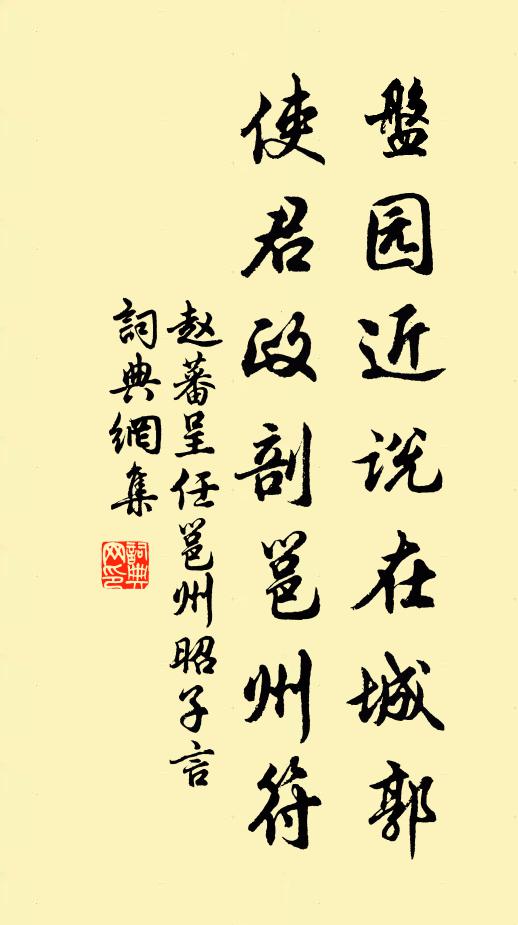 盤园近说在城郭
使君政剖邕州符
赵蕃呈任邕州昭子言
詞典網集
詞典
网印